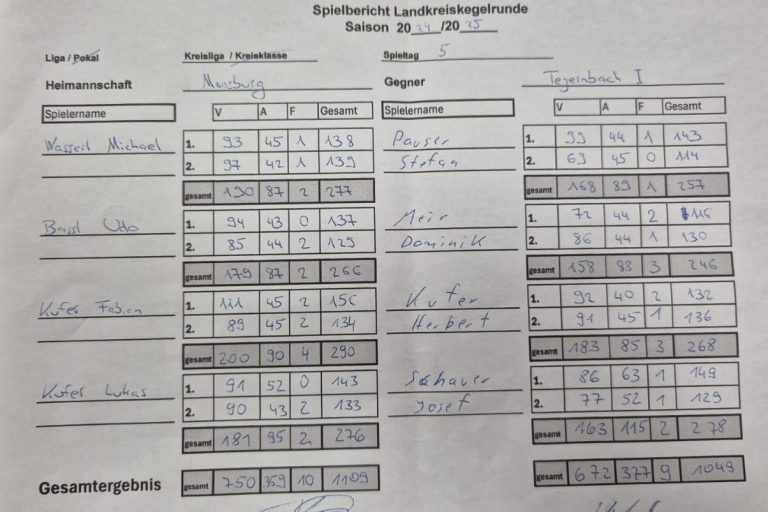 Spielbericht Landkreiskegelrunde
Saison 2024/2025
Liga / Pokal Kreisliga / Kreisklasse Spieltag 5
Heimannschaft Gegner Tegernbach I
Spielername V A F Gesamt Spielername V A F Gesamt
Wasseil Michael 1. 93 45 1 138 Pauser 1. 99 44 1 143
2. 97 42 1 139 Stefan 2. 69 45 0 114
gesamt 190 87 2 277 gesamt 168 89 1 257
Udo 1. 94 43 0 137 Meir 1. 72 44 2 116
2. 85 44 2 129 Dominik 2. 86 44 1 130
gesamt 179 87 2 266 gesamt 158 88 3 246
Kufer Fabian 1. 111 45 2 156 Kufer 1. 92 40 2 132
2. 89 45 2 134 Herbert 2. 91 45 1 136
gesamt 200 90 4 290 gesamt 183 85 3 268
Kufer Lukas 1. 91 52 0 143 Schauer 1. 86 63 1 149
2. 90 43 2 133 Josef 2. 77 52 1 129
gesamt 181 95 2 276 gesamt 163 115 2 278
Gesamtergebnis gesamt 750 359 10 1109 gesamt 672 377 9 1049